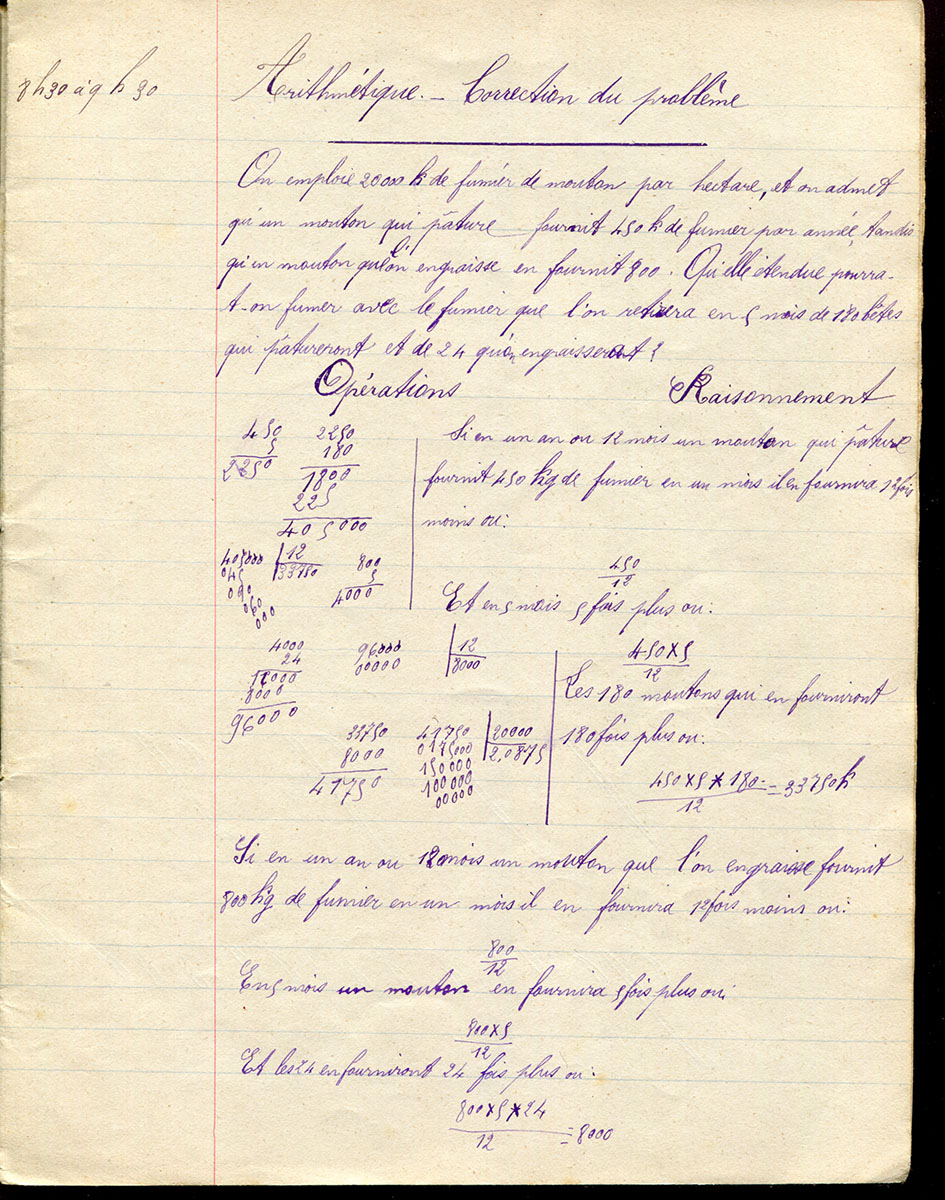 8h30 à 9h30
Arithmétique. — Correction du problême
On emploie 20000 k de fumier de mouton par hectare, et on admet
qu'un mouton qui pâture fournit 450 k de fumier par année, tandis
qu'un mouton que l'on engraisse en fournit 800. Qu'elle étendue pourra-
t-on fumer avec le fumier que l'on retirera en 5 mois de 180 bêtes
qui pâtureront et de 24 qu'on engraisseront ?
Opérations
Raisonnement
450
5
2250
2250
180
1800
225
405000
405000 | 12
045 33750
090
060
000
800
5
4000
4000
24
16000
8000
96000
96000 | 12
00000 8000
33750
8000
41750
41750 | 20000
0175000 2,0875
150000
100000
00000
Si en un an ou 12 mois un mouton qui pâture
fournit 450 kg de fumier en un mois il en fournira 12 fois
moins ou:
450
12
Et en 5 mois 5 fois plus ou:
450 x 5
12
Les 180 moutons qui en fourniront
180 fois plus ou:
450 x 5 x 180 = 33750 k
12
Si en un an ou 12 mois un mouton que l'on engraisse fournit
800 kg de fumier en un mois il en fournira 12 fois moins ou:
800
12
En 5 mois un mouton en fournira 5 fois plus ou:
800 x 5
12
Et les 24 en fourniront 24 fois plus ou:
800 x 5 x 24 = 8000
12